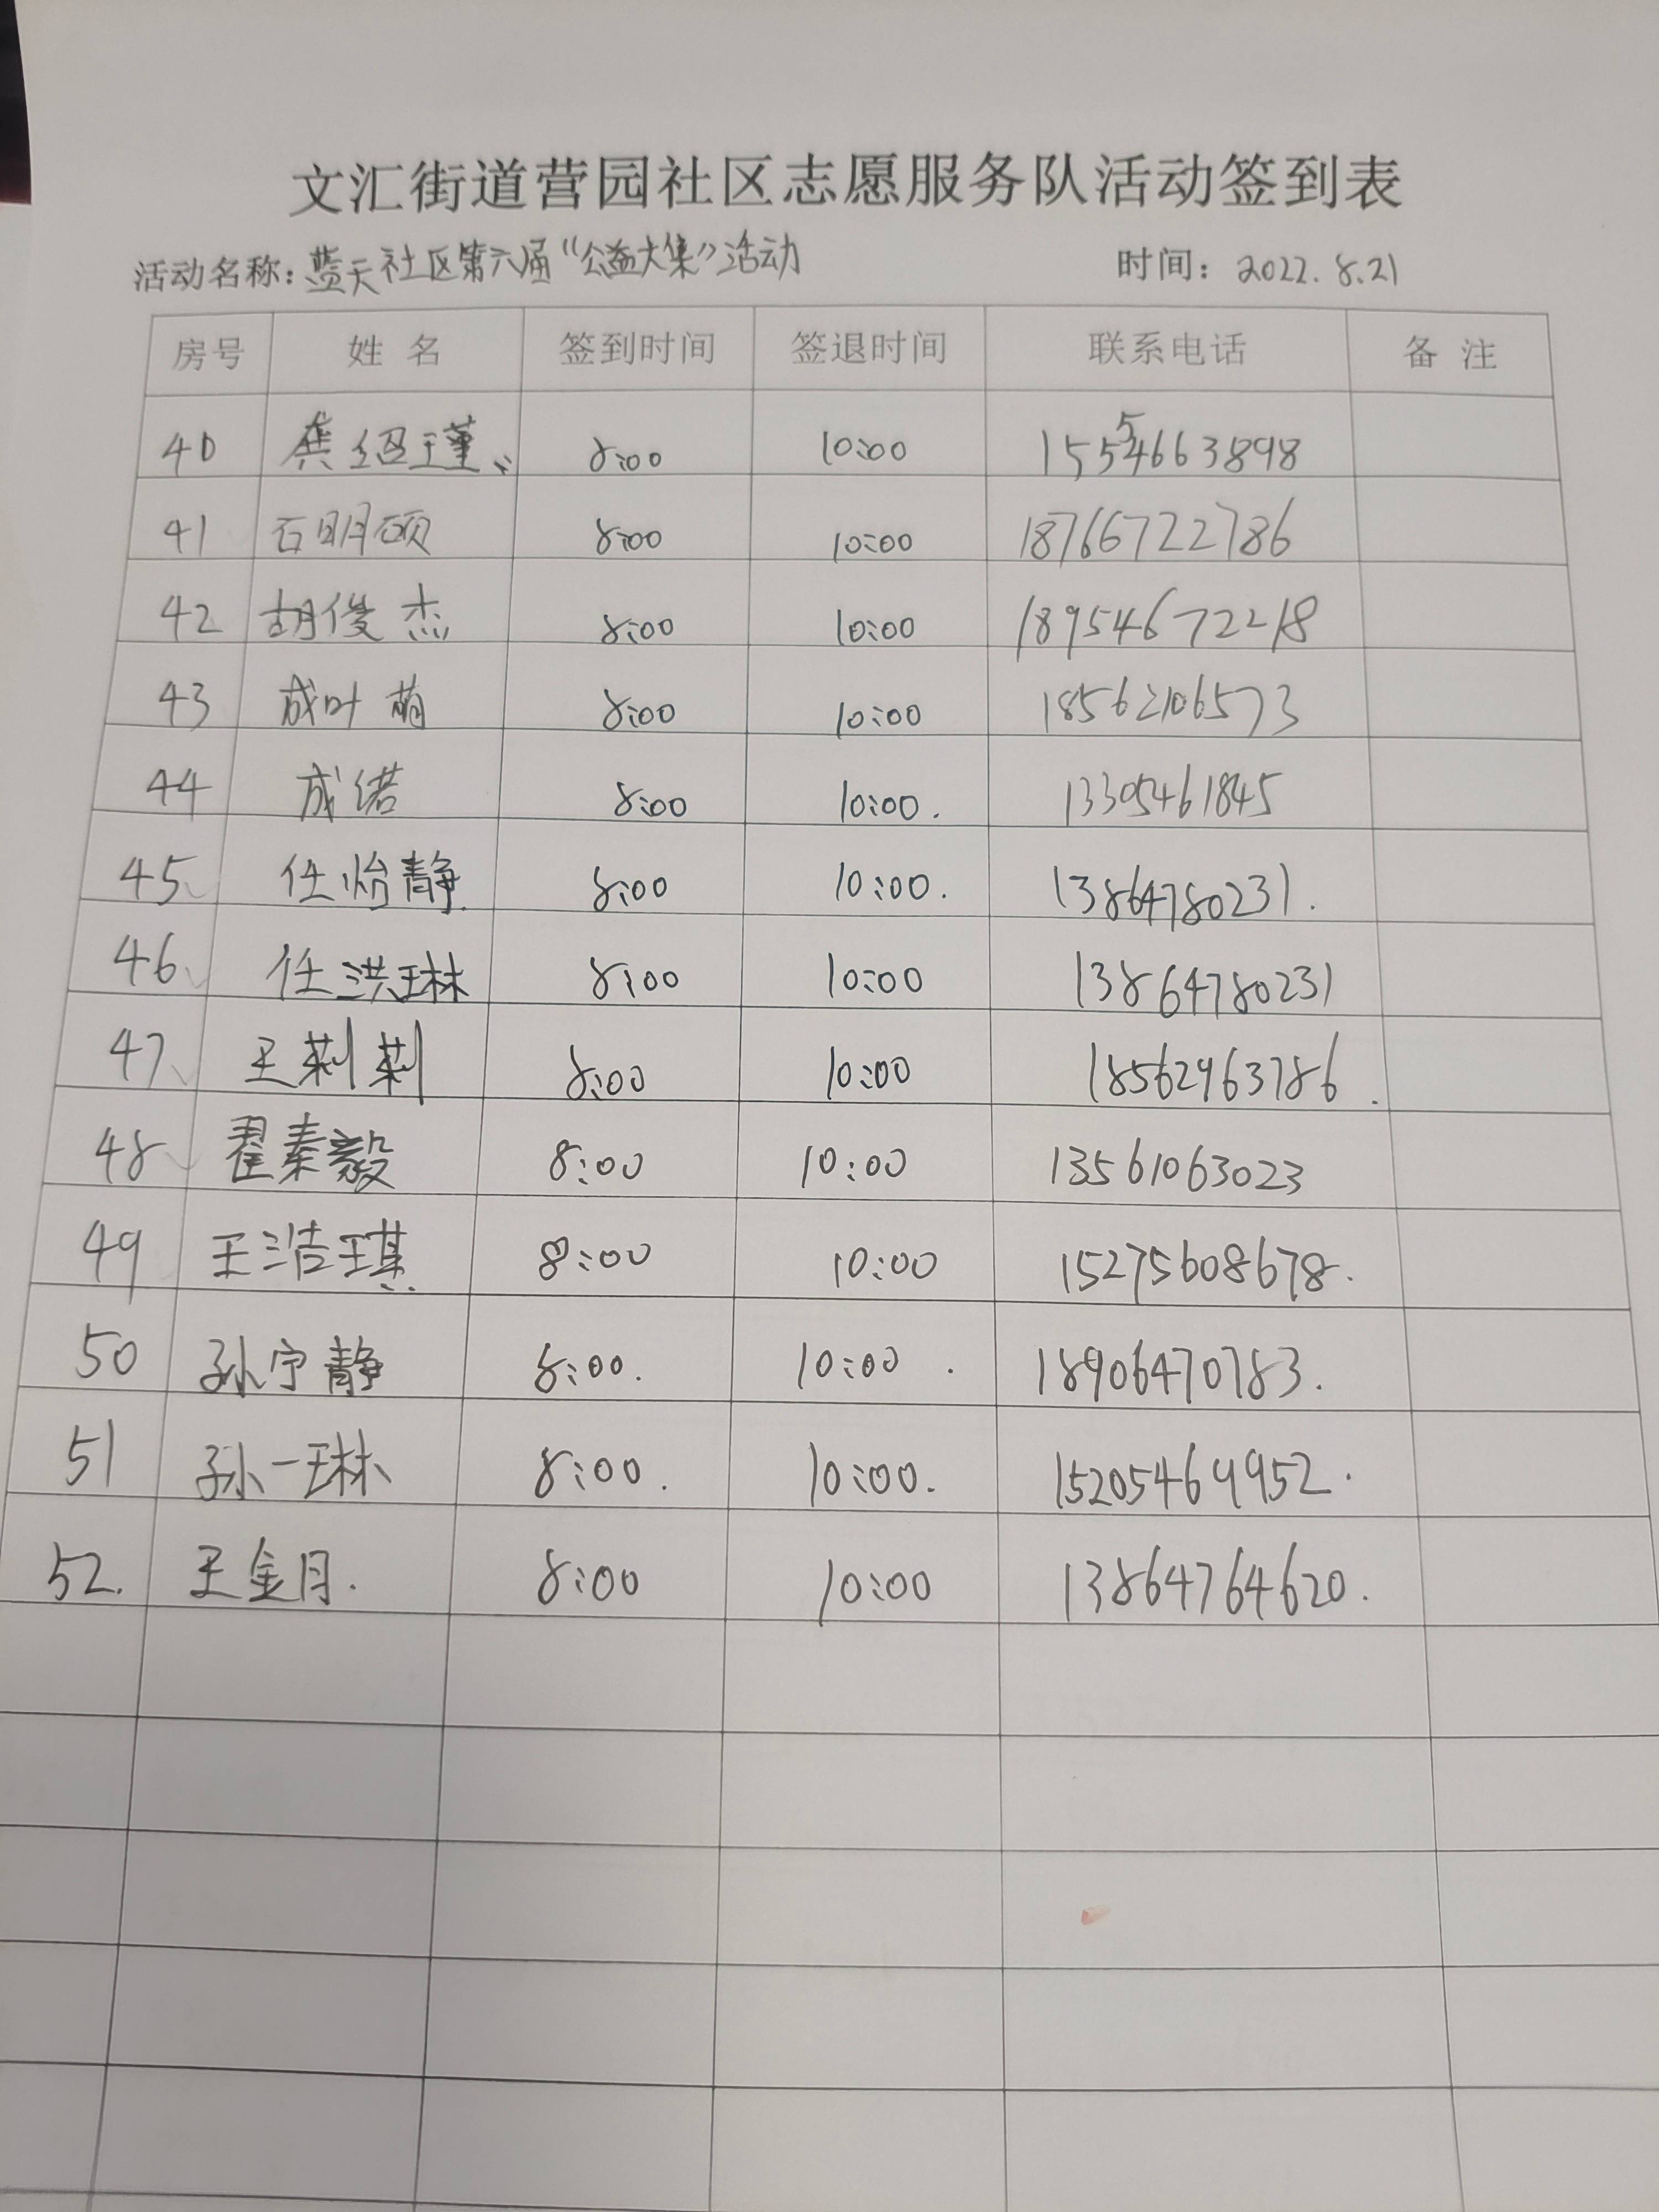 文汇街道营园社区志愿服务队活动签到表
活动名称：蓝天社区第六届“公益大集”活动 时间：2022.8.21
房号 姓名 签到时间 签退时间 联系电话 备注
40 龚绍瑾 8:00 10:00 15554663898
41 石明硕 8:00 10:00 18766722786
42 胡俊杰 8:00 10:00 18954672218
43 成叶萌 8:00 10:00 18562106573
44 成诺 8:00 10:00. 13305461845
45、 任怡静. 8:00 10:00. 13864780231.
46、 任洪琳 8:00 10:00 13864780231
47、 王莉莉 8:00 10:00 18562963786.
48、 翟秦毅 8:00 10:00 13561063023
49 王浩琪 8:00 10:00 15275608678.
50 孙宁静 8:00. 10:00. 18906470783.
51 孙一琳 8:00. 10:00. 15205469952.
52. 王金月. 8:00 10:00 13864764620.